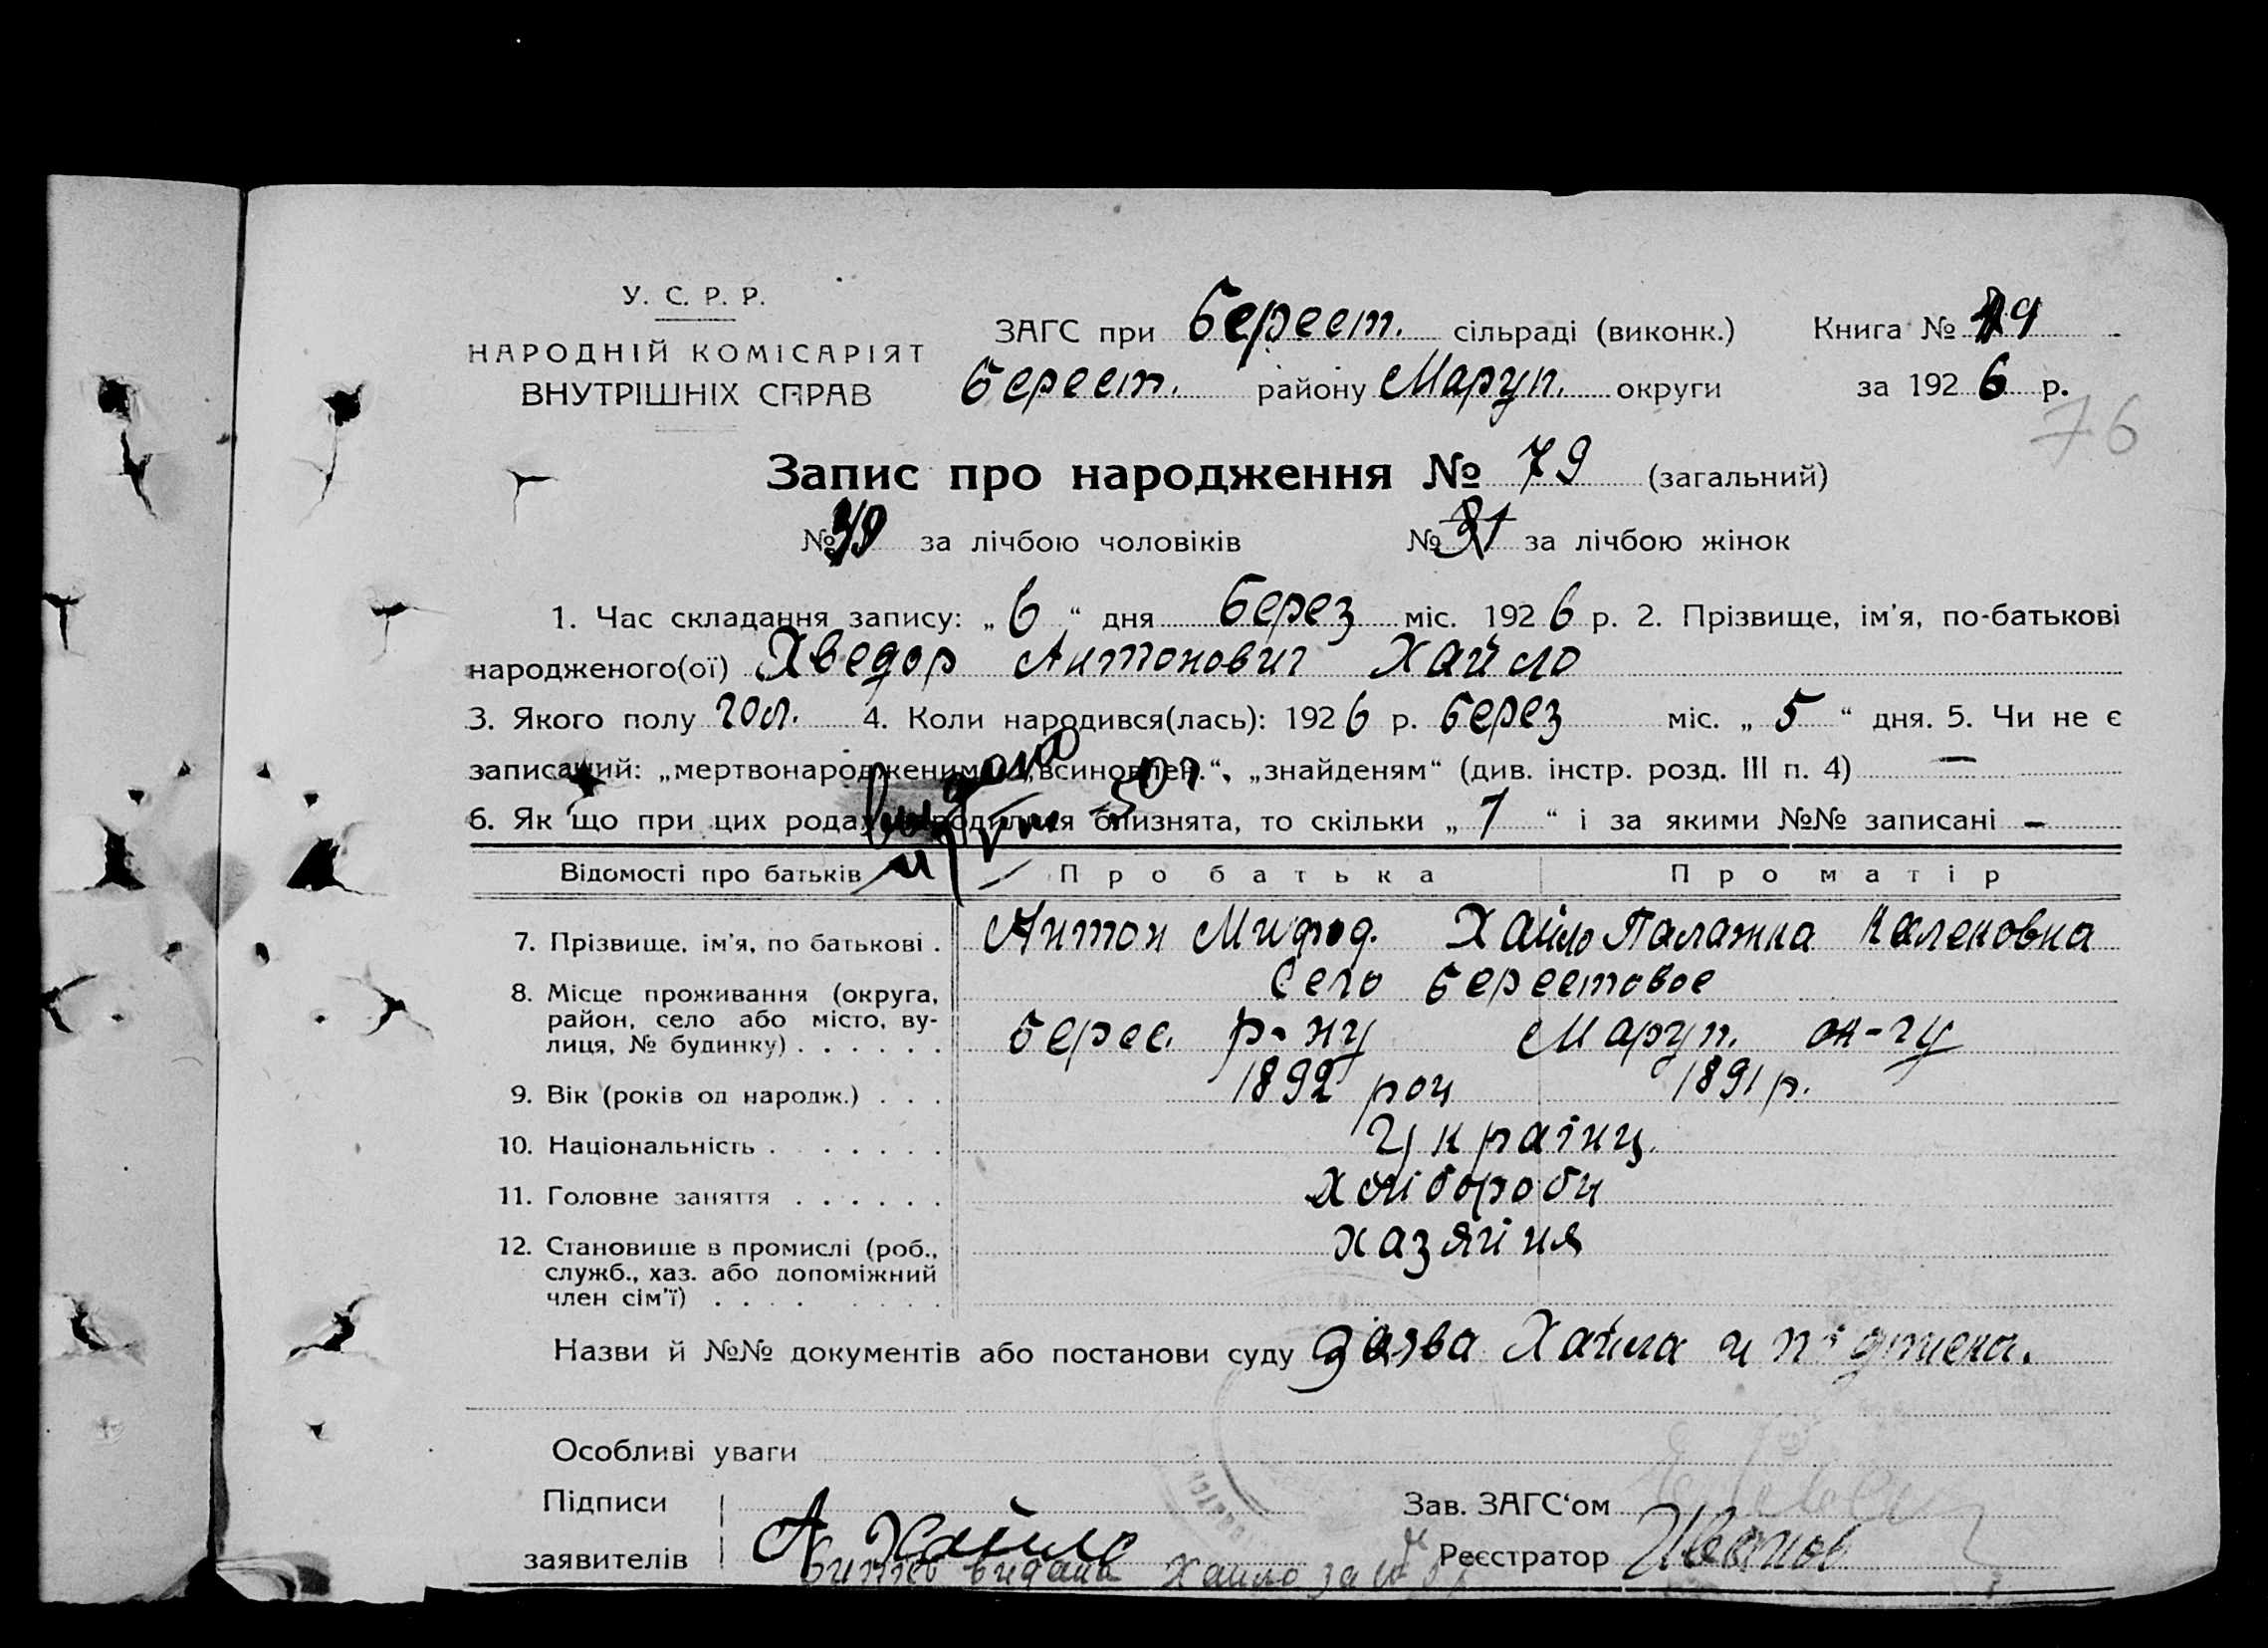 У. С. Р. Р.
НАРОДНІЙ КОМІСАРІЯТ
ВНУТРІШНІХ СПРАВ
ЗАГС при Берест. сільраді (виконк.) Книга №
Берест. району Мариуп. округи за 1926 р.
76
Запис про народження № 79 (загальний)
№ 39 за лічбою чоловіків № 31 за лічбою жінок
1. Час складання запису: „6“ дня Берез міс. 1926 р. 2. Прізвище, ім'я, по-батькові
народженого(ої) Хведор Антонович Хайло
3. Якого полу чол. 4. Коли народився(лась): 1926 р. Берез міс. „5“ дня. 5. Чи не є
записаний: „мертвонародженим“, „всиновлен.“, „знайденям“ (див. інстр. розд. III п. 4) —
6. Як що при цих родах народилися близнята, то скільки „1“ і за якими №№ записані —
Відомості про батьків Про батька Про матір
7. Прізвище, ім'я, по батькові . Антон Мифод. Хайло Палажка
Село Берестовое
8. Місце проживання (округа, район, село або місто, вулиця, № будинку) . . . . . . Берес. р-ну Мариуп. ок-гу
9. Вік (років од народж.) . . . 1892 роц 1891 р.
10. Національність . . . . . . . Українц.
11. Головне заняття . . . . . . Хліборобц
12. Становище в промислі (роб., служб., хаз. або допоміжний член сім'ї) . . . . . . . . хазяїня
Назви й №№ документів або постанови суду Заява Хайла и підписка.
Особливі уваги
Підписи
заявителів А Хайло
Зав. ЗАГС'ом
Реєстратор Иванов
видана Хайло за №